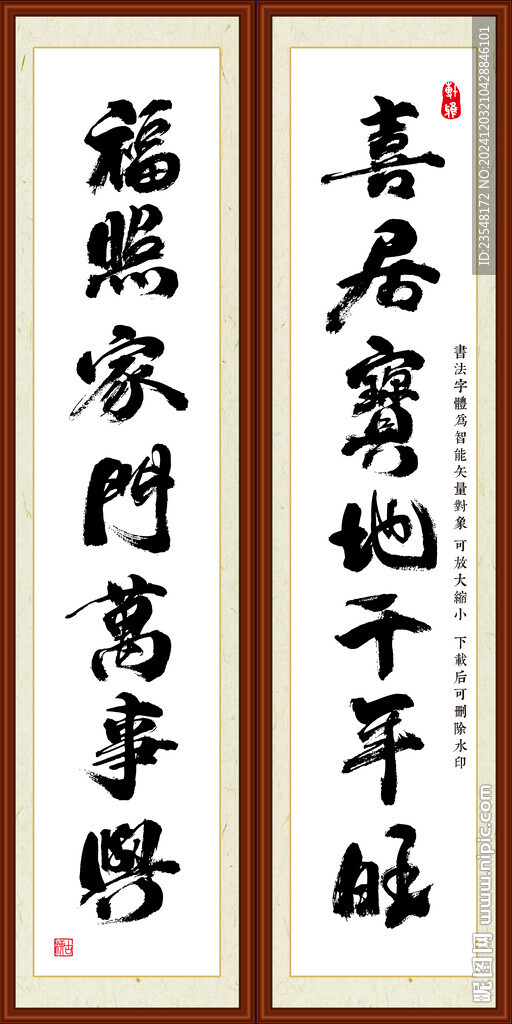 喜居寶地千年旺
福照家門萬事興
書法字體為智能矢量對象 可放大縮小 下載后可刪除水印
ID:23548172 NO:20241203210428846101
昵图网 www.nipic.com